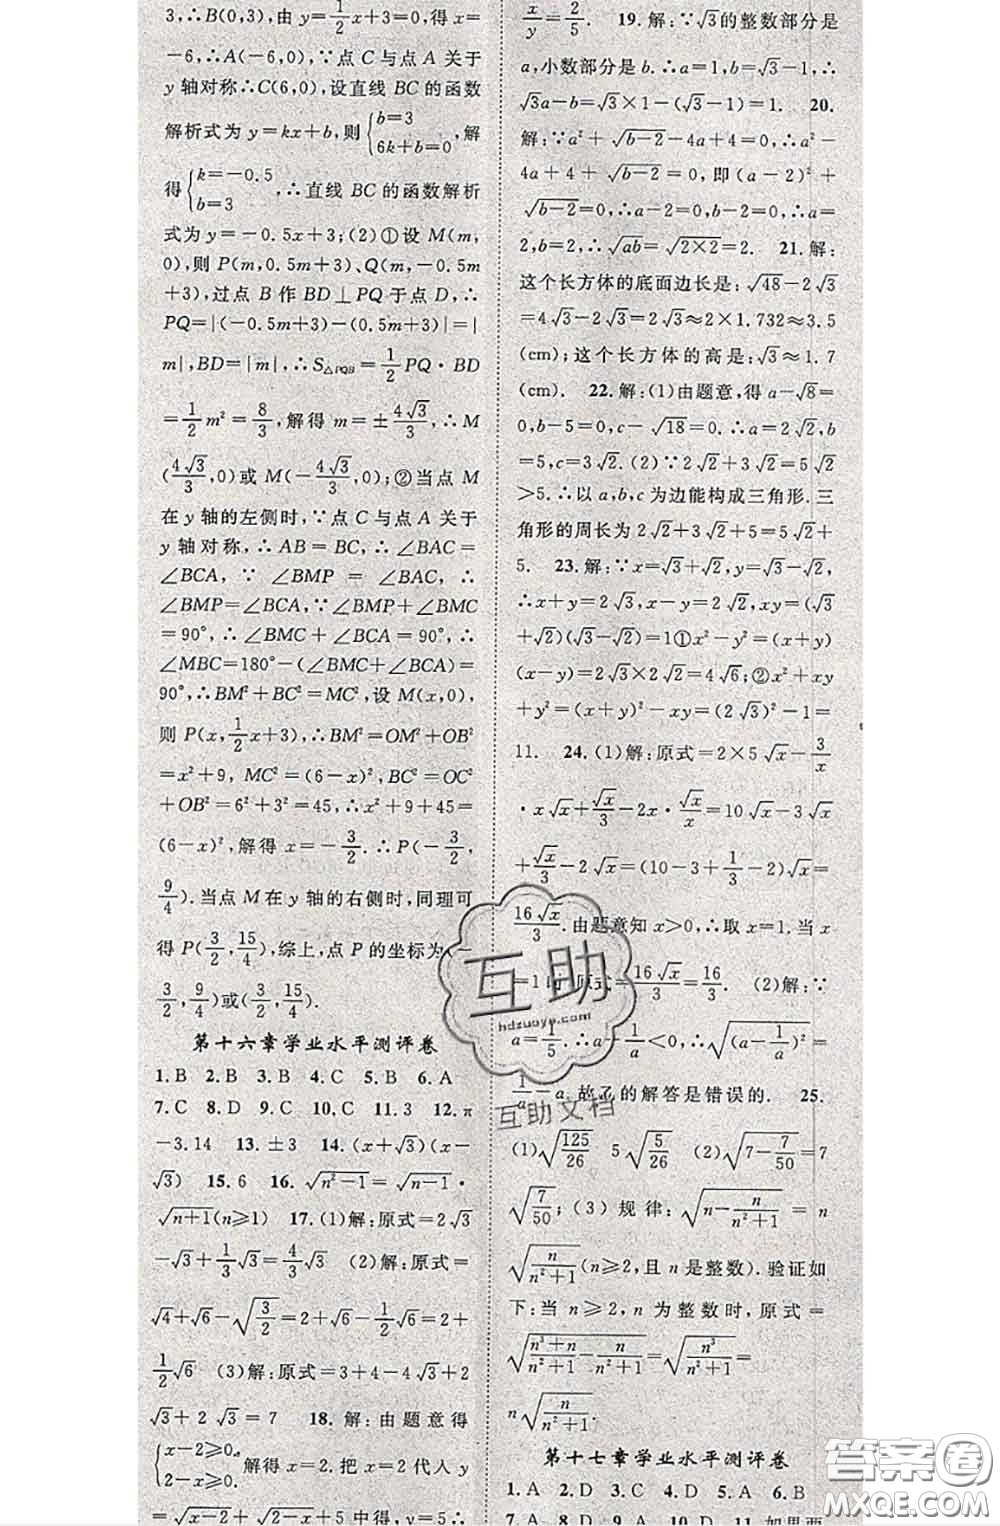 3,∴B(0,3),由 y=1/2x+3=0,得 x=
-6,∴A(-6,0),∵点 C 与点 A 关于
y 轴对称∴C(6,0),设直线 BC 的函数
解析式为 y=kx+b,则{b=3 6k+b=0,解
得{k=-0.5 b=3,∴直线 BC 的函数解析
式为 y=-0.5x+3;(2)①设 M(m,
0),则 P(m,0.5m+3)、Q(m,-0.5m
+3),过点 B 作 BD⊥PQ 于点 D,∴
PQ=|(-0.5m+3)-(0.5m+3)|=|
m|,BD=|m|,∴S△PQB=1/2PQ·BD
=1/2m²=8/3,解得 m=±4√3/3,∴M
(4√3/3,0)或 M(-4√3/3,0);②当点 M
在 y 轴的左侧时,∵点 C 与点 A 关于
y 轴对称,∴AB=BC,∴∠BAC=
∠BCA,∵∠BMP=∠BAC,∴
∠BMP=∠BCA,∵∠BMP+∠BMC
=90°,∴∠BMC+∠BCA=90°,∴
∠MBC=180°-(∠BMC+∠BCA)=
90°,∴BM²+BC²=MC²,设 M(x,0),
则 P(x,1/2x+3),∴BM²=OM²+OB²
=x²+9,MC²=(6-x)²,BC²=OC²
+OB²=6²+3²=45,∴x²+9+45=
(6-x)²,解得 x=-3/2.∴P(-3/2,
9/4).当点 M 在 y 轴的右侧时,同理可
得 P(3/2,15/4),综上,点 P 的坐标为(-
3/2,9/4)或(3/2,15/4).
第十六章学业水平测评卷
1.B 2.B 3.B 4.C 5.B 6.A
7.C 8.D 9.C 10.C 11.3 12.π
-3.14 13.±3 14.(x+√3)(x-
√3) 15.6 16.√(n²-1)=√(n-1)·
√(n+1)(n≥1) 17.(1)解:原式=2√3
-√3+1/3√3=4/3√3 (2)解:原式=
√4+√6-√(3/2)=2+√6-1/2√6=2+
1/2√6 (3)解:原式=3+4-4√3+2
√3+2√3=7 18.解:由题意得
{x-2≥0, 2-x≥0,解得 x=2.把 x=2 代入 y
=√(x-2)+√(2-x)+5 中得,y=5.∴
x/y=2/5. 19.解:∵√3的整数部分是
a,小数部分是 b.∴a=1,b=√3-1,∴
√3a-b=√3×1-(√3-1)=1. 20.
解:∵a²+√(b-2)-4a+4=0,∴a²-
4a+4+√(b-2)=0,即(a-2)²+
√(b-2)=0,∴a-2=0,b-2=0,∴a=
2,b=2,∴√(ab)=√(2×2)=2. 21.解:
这个长方体的底面边长是:√48-2√3
=4√3-2√3=2√3≈2×1.732≈3.5
(cm);这个长方体的高是:√3≈1.7
(cm). 22.解:(1)由题意,得 a-√8=
0,b-5=0,c-√18=0.∴a=2√2,b
=5,c=3√2.(2)∵2√2+3√2=5√2
>5.∴以 a,b,c 为边能构成三角形.三
角形的周长为 2√2+3√2+5=5√2+
5. 23.解:∵x=√3+√2,y=√3-√2,
∴x+y=2√3,x-y=2√2,xy=(√3
+√2)(√3-√2)=1①x²-y²=(x+y)
(x-y)=2√3×2√2=4√6;②x²+xy
+y²=(x+y)²-xy=(2√3)²-1=
11. 24.(1)解:原式=2×5√x-3/x
·x√x+√x/3-2x·√x/x=10√x-3√x
+√x/3-2√x=(10-3+1/3-2)√x=
16√x/3.由题意知 x>0,∴取 x=1.当 x
=1时,原式=16√x/3=16/3. (2)解:∵
a=1/5.∴a-1/a<0.∴√((a-1/a)²)=
1/a-a.故乙的解答是错误的. 25.
(1)√(125/26) 5√(5/26) (2)√(7-7/50)=7
√(7/50);(3)规律:√(n-n/(n²+1))=n
√(n/(n²+1))(n≥2,且 n 是整数).验证如
下:当 n≥2,n 为整数时,原式=
√((n³+n)/(n²+1)-n/(n²+1))=√(n³/(n²+1))=
n√(n/(n²+1)).
第十七章学业水平测评卷
1.A 2.D 3.C 4.D 5.A 6.B
互助
hdzuoye.com
互助文档
答案圈
MXQE.COM